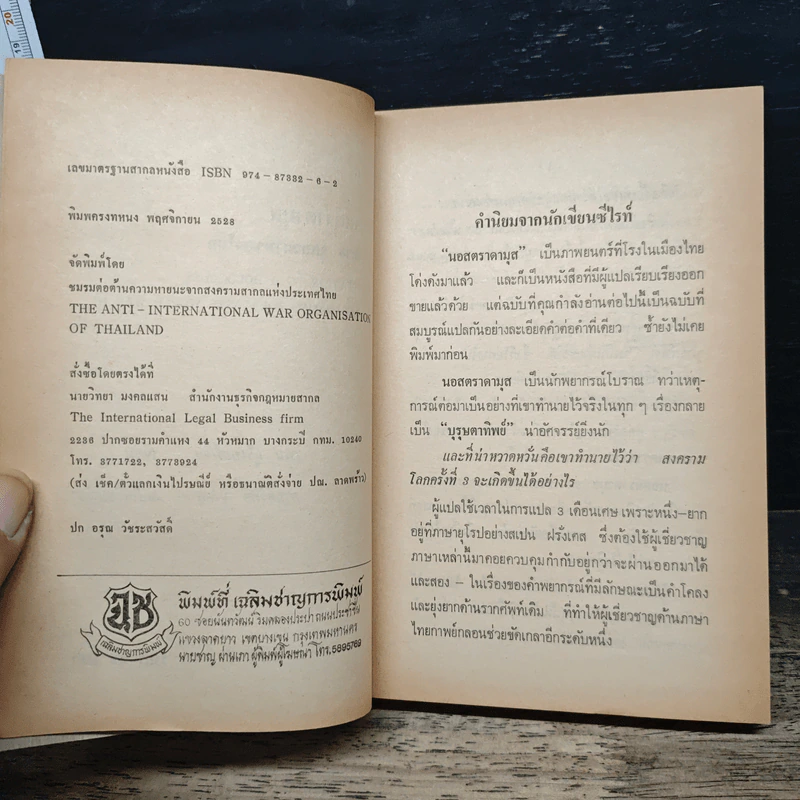 20
19
เลขมาตรฐานสากลหนังสือ ISBN 974-87332-6-2
พิมพครงทหนง พฤศจิกายน 2528
จัดพิมพ์โดย
ชมรมต่อต้านความหายนะจากสงครามสากลแห่งประเทศไทย
THE ANTI - INTERNATIONAL WAR ORGANISATION
OF THAILAND
สั่งซื้อโดยตรงได้ที่
นายวิทยา มงคลแสน สำนักงานธุรกิจกฎหมายสากล
The International Legal Business firm
2236 ปากซอยรามคำแหง 44 หัวหมาก บางกะปิ กทม. 10240
โทร. 3771722, 3773924
(ส่ง เช็ค/ตั๋วแลกเงินไปรษณีย์ หรือธนาณัติสั่งจ่าย ปณ. ลาดพร้าว)
ปก อรุณ วัชระสวัสดิ์
ฉช
เฉลิมชาญการพิมพ์
พิมพ์ที่ เฉลิมชาญการพิมพ์
60 ซอยนันทวัฒน์ ริมคลองประปา ถนนประชาชื่น
แขวงลาดยาว เขตบางเขน กรุงเทพมหานคร
นายชาญ ผ่านเภา ผู้พิมพ์ผู้โฆษณา โทร.5895769
คำนิยมจากนักเขียนซีไรท์
"นอสตราดามุส" เป็นภาพยนตร์ที่โรงในเมืองไทย
โด่งดังมาแล้ว และก็เป็นหนังสือที่มีผู้แปลเรียบเรียงออก
ขายแล้วด้วย แต่ฉบับที่คุณกำลังอ่านต่อไปนี้เป็นฉบับที่
สมบูรณ์แปลกันอย่างละเอียดคำต่อคำทีเดียว ซ้ำยังไม่เคย
พิมพ์มาก่อน
นอสตราดามุส เป็นนักพยากรณ์โบราณ ทว่าเหตุ-
การณ์ต่อมาเป็นอย่างที่เขาทำนายไว้จริงในทุก ๆ เรื่องกลาย
เป็น "บุรุษตาทิพย์" น่าอัศจรรย์ยิ่งนัก
และที่น่าหวาดหวั่นคือเขาทำนายไว้ว่า สงคราม
โลกครั้งที่ 3 จะเกิดขึ้นได้อย่างไร
ผู้แปลใช้เวลาในการแปล 3 เดือนเศษ เพราะหนึ่ง-ยาก
อยู่ที่ภาษายุโรปอย่างสเปน ฝรั่งเศส ซึ่งต้องใช้ผู้เชี่ยวชาญ
ภาษาเหล่านี้มาคอยควบคุมกำกับอยู่กว่าจะผ่านออกมาได้
และสอง - ในเรื่องของคำพยากรณ์ที่มีลักษณะเป็นคำโคลง
และยุ่งยากด้านรากศัพท์เดิม ที่ทำให้ผู้เชี่ยวชาญด้านภาษา
ไทยกาพย์กลอนช่วยขัดเกลาอีกระดับหนึ่ง